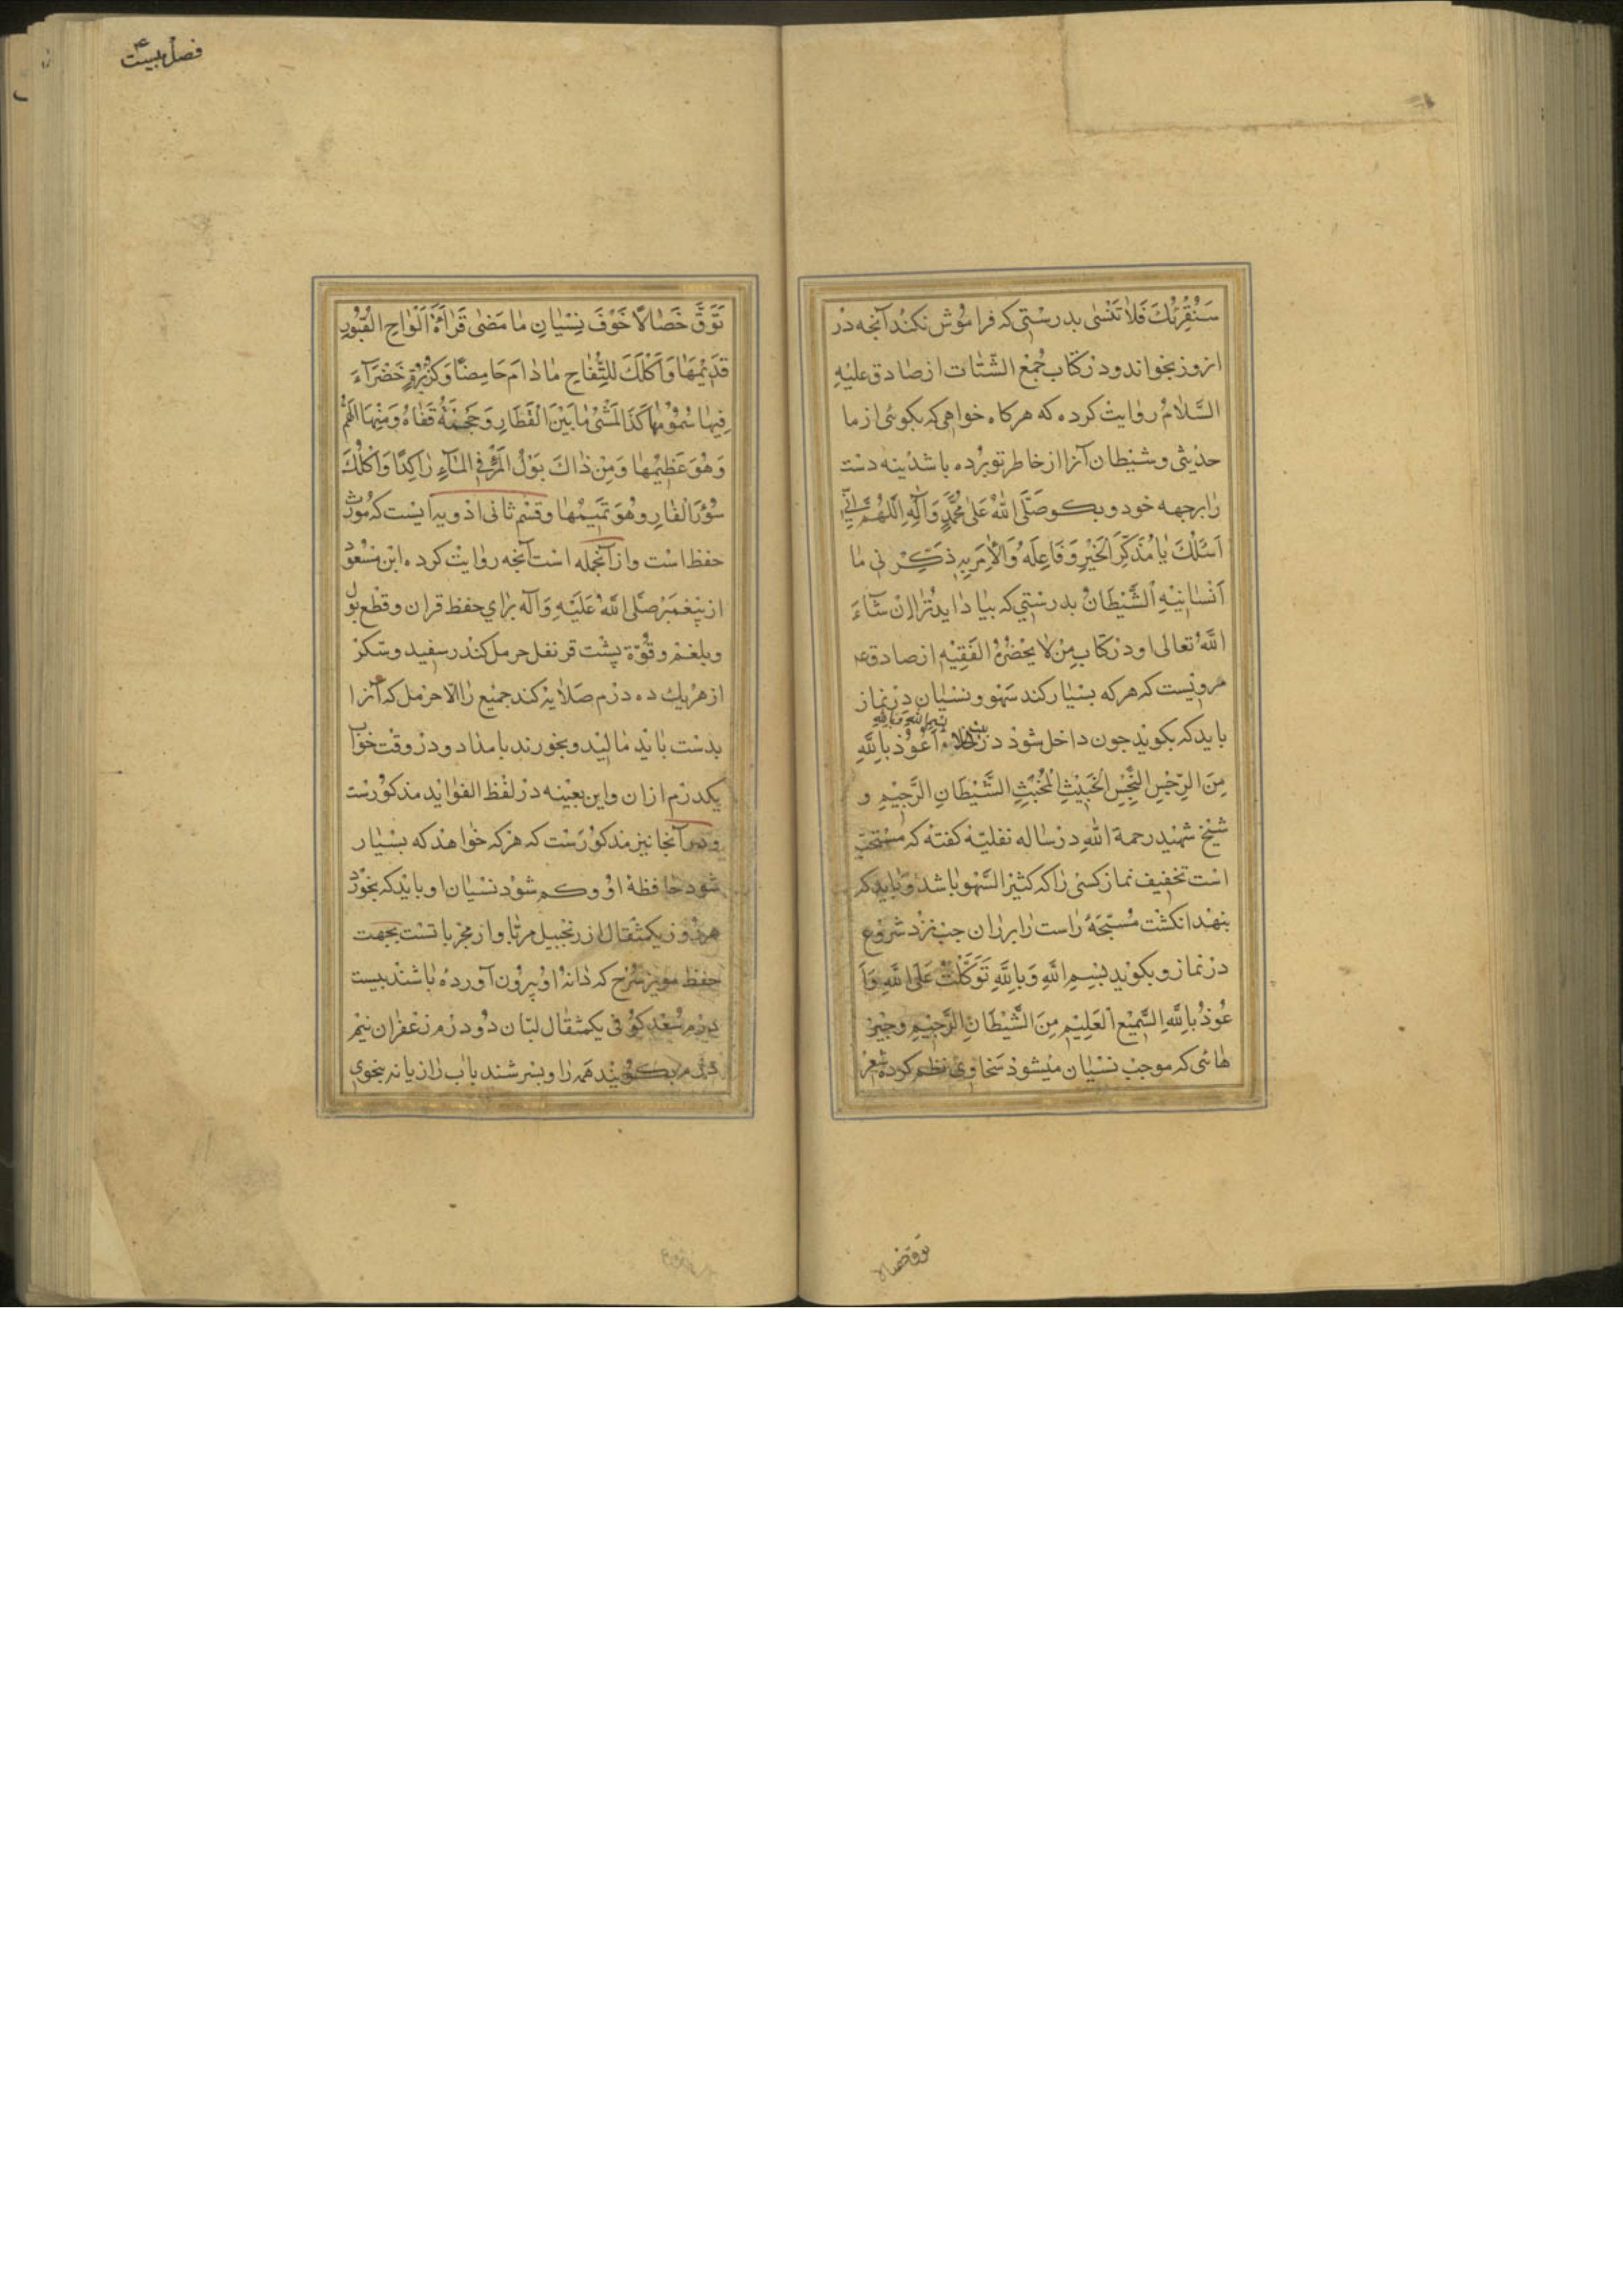 سَنُقْرِئُكَ فَلاٰ تَنْسٰى بدرستی که فراموش نکند آنچه در
انروز بخواند و در کتاب جُمَع الشَّتات از صادق علیهِ
السَّلامُ روایت کرده که هرکاه خواهی که بکوئی از ما
حدیثی و شیطان آنرا از خاطر تو برده باشد بنه دست
را برجبهه خود و بکو صَلَّى اللهُ عَلىٰ مُحَمَّدٍ وَآلِهِ اَللّٰهُمَّ اِنّی
اَسْئَلُكَ یٰا مُذَکِّرَ الْخَیْرِ وَفَاعِلَهُ وَالْاٰمِرَ بِهِ ذَکِّرْنی مٰا
اَنْسٰانِیْهِ الشَّیْطَانُ بدرستی که بیاد اید ترا اِنْ شٰآءَ
اللهُ تعالی و در کتاب مِنْ لا یَحْضُرُهُ الفَقِیْه از صادق ع
مرویست که هرکه بسیار کند سَهْو و نسیان در نماز
باید که بکوید جون داخل شود در خلاء بِسْمِ اللهِ وَبِاللهِ اَعُوْذُ بِاللهِ
مِنَ الرِّجْسِ النَّجِسِ الْخَبِیْثِ الْمُخْبِثِ الشَّیْطَانِ الرَّجِیْمِ و
شیخ شهید رحمة الله در رساله نفلیّه کفته که مستحب
است تخفیف نماز کسی را که کثیر السَّهْو باشد و باید که
بنهد انکشت مُسَبِّحَهٔ راست را بر ران جب نزد شروع
در نماز و بکوید بِسْمِ اللهِ وَبِاللهِ تَوَکَّلْتُ عَلَى اللهِ وَاَ
عُوْذُ بِاللهِ السَّمِیْعِ الْعَلِیْمِ مِنَ الشَّیْطَانِ الرَّجِیْمِ و جیز
هائی که موجب نسیان میشود سَخاوی نظم کرده شعر
توق خصالا
فصل بیست
تَوَقَّ خَصٰالًا خَوْفَ نِسْیٰانِ مٰا مَضٰى قَرٰاءَةُ اَلْوٰاحِ الْقُبُوْرِ
قَدِیْمَهٰا وَاَکْلَكَ لِلتُّفّٰاحِ مٰادٰامَ حَامِضًا وَکُزْبُرَةٍ خَضْرَآءَ
فِیْهٰا سُمُوْمُهٰا کَذَا الْمَشْیُ مٰا بَیْنَ الْقَطَارِ وَحَجْمُهُ قَفٰاهُ وَمِنْهَا الْهَمُّ
وَهُوَ عَظِیْمُهٰا وَمِنْ ذٰاكَ بَوْلُ الْمَرْءِ فِی الْمٰآءِ رٰاکِدًا وَاَکْلُكَ
سُؤْرَ الْفٰارِ وَهُوَ تَمِیْمُهٰا و قسم ثانی ادویه ایست که مورث
حفظ است و از آنجمله است آنجه روایت کرده ابن مسعود
از پیغمبر صَلَّى اللهُ عَلَیْهِ وَآلِه برای حفظ قران و قطع بول
و بلغم و قُوّة پشت قرنفل حرمل کندر سفید و سکر
از هریك ده درم صَلایه کند جمیع را الّا حرمل که آنرا
بدست باید مالید و بخورند بامداد و در وقت خواب
یکدرم ازان و این بعینه در لفظ الفواید مذکورست
و در آنجا نیز مذکورست که هرکه خواهد که بسیار
شود حافظهٔ او و کم شود نسیان او باید که بخورد
هر روز یکمثقال از زنجبیل مربّا و از مجرباتست بجهت
حفظ مویز سرخ که دانهٔ او بیرون آورده باشند بیست
درم سُعْد کوفی یکمثقال لبّان دو درم زعفران نیم
درم بکوبند همه را و بسرشند باب رازیانه بنحوی